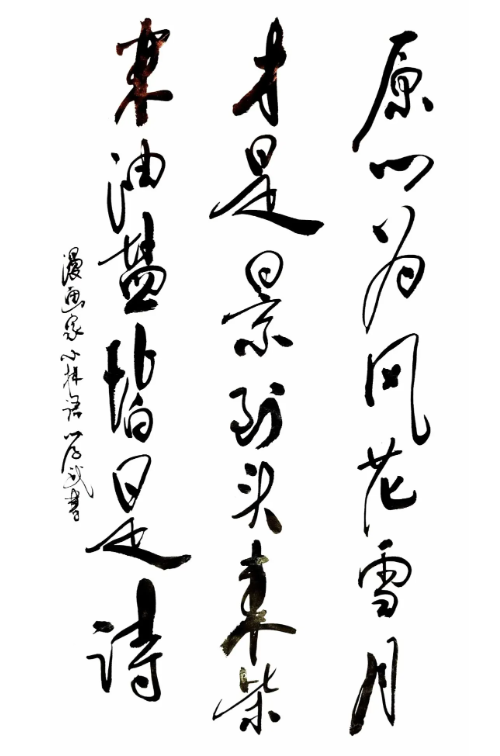 原以为风花雪月
才是景到头来柴
米油盐皆是诗
漫画家小林语以武书